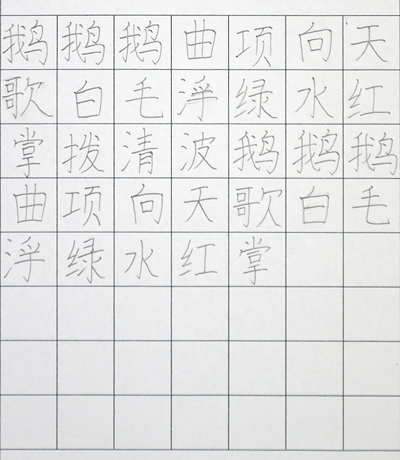 鹅鹅鹅曲项向天
歌白毛浮绿水红
掌拨清波鹅鹅鹅
曲项向天歌白毛
浮绿水红掌